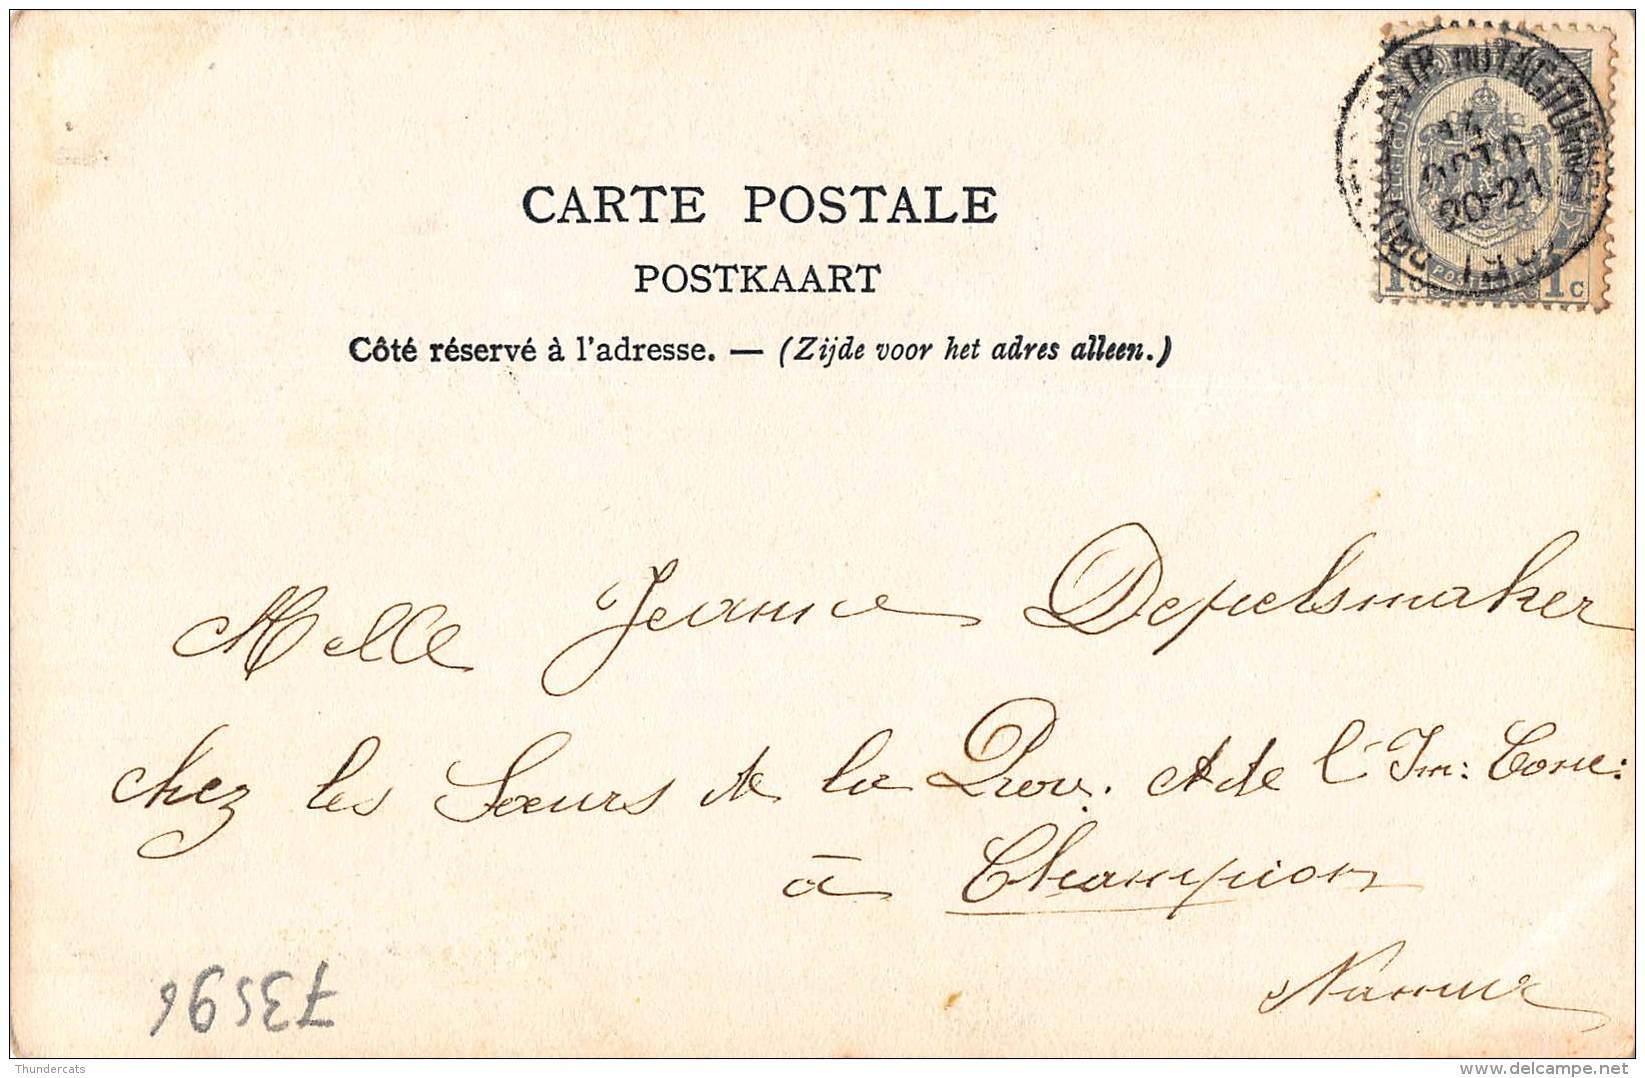 CARTE POSTALE
POSTKAART
Côté réservé à l'adresse. — (Zijde voor het adres alleen.)
14
OCTO
20-21
1 c
POSTERIJEN
1 c
Melle Jeanne Depelsmaker
chez les Sœurs de la Prov. et de l'Im: Conc:
à Champion
Namur
73596
Thundercats
delcampe.net